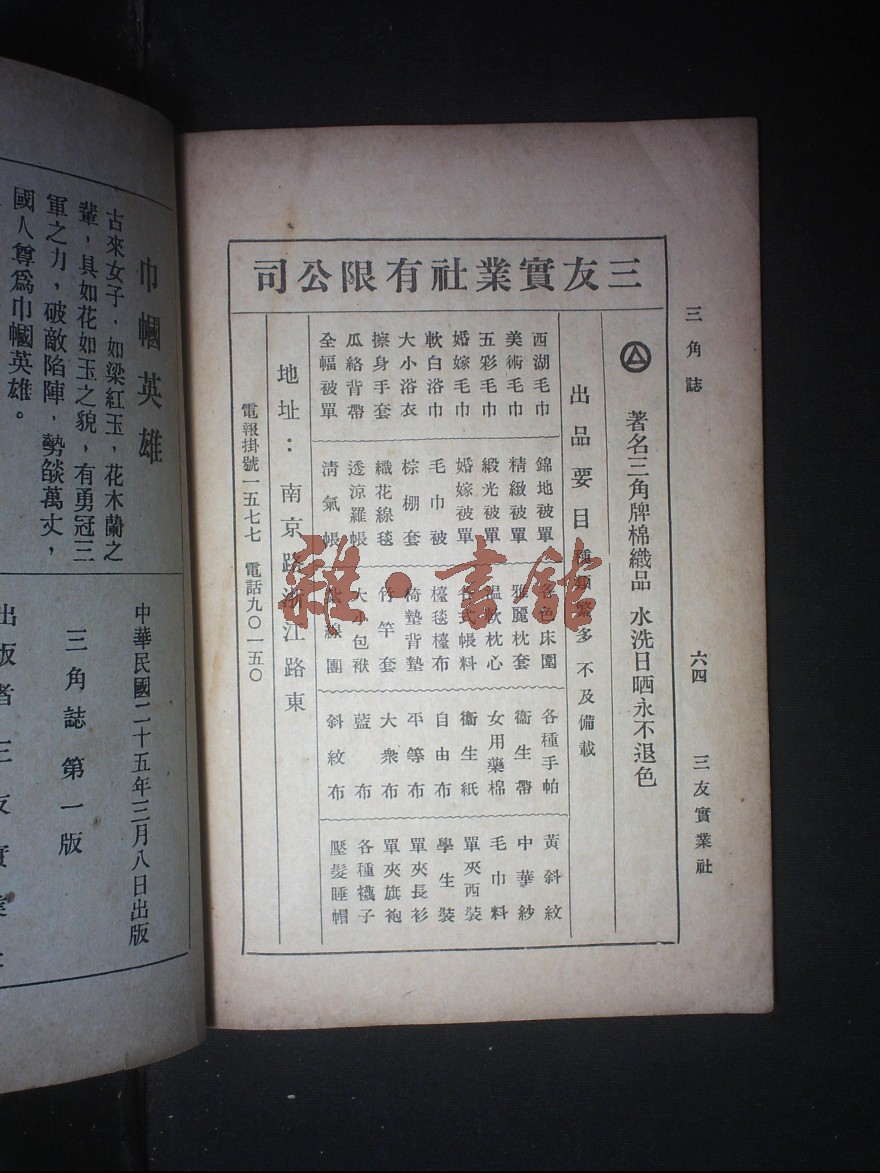 三角誌
六四
三友實業社
三友實業社有限公司
著名三角牌棉織品 水洗日晒永不退色
出品要目 種類繁多 不及備載
西湖毛巾
美術毛巾
五彩毛巾
婚嫁毛巾
軟白浴巾
大小浴衣
擦身手套
瓜絡背帶
全幅被單
錦地被單
精緻被單
緞光被單
婚嫁被單
毛巾被
棕棚套
織花線毯
透涼羅帳
清氣帳
各色床圍
雅麗枕套
溫軟枕心
各式帳料
檯毯檯布
椅墊背墊
竹竿套
大小包袱
線團
各種手帕
衞生帶
女用藥棉
衞生紙
自由布
平等布
大衆布
藍布
斜紋布
黃斜紋
中華紗
毛巾料
單夾西裝
學生裝
單夾長衫
單夾旗袍
各種襪子
壓髮睡帽
地址：南京路浙江路東
電報掛號一五七七 電話九〇一五〇
雜·書館
巾幗英雄
古來女子，如梁紅玉，花木蘭之
輩，具如花如玉之貌，有勇冠三
軍之力，破敵陷陣，勢燄萬丈，
國人尊爲巾幗英雄。
中華民國二十五年三月八日出版
三角誌第一版
出版者三友實業社